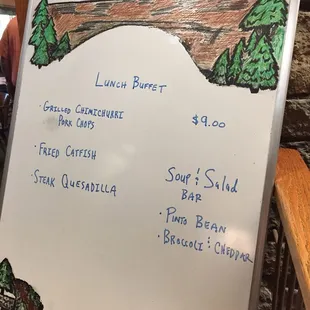 Lunch Buffet
· Grilled Chimichurri
Pork Chops
$9.00
· Fried Catfish
· Steak Quesadilla
Soup & Salad
Bar
· Pinto Bean
· Broccoli & Cheddar